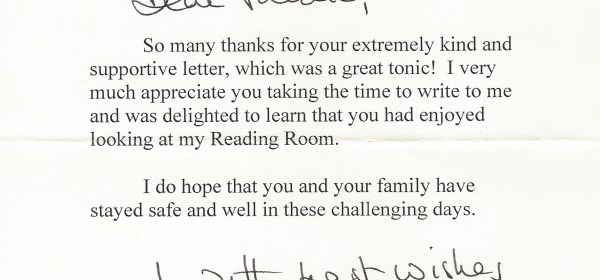 Dear
So many thanks for your extremely kind and
supportive letter, which was a great tonic!  I very
much appreciate you taking the time to write to me
and was delighted to learn that you had enjoyed
looking at my Reading Room.
I do hope that you and your family have
stayed safe and well in these challenging days.
With best wishes